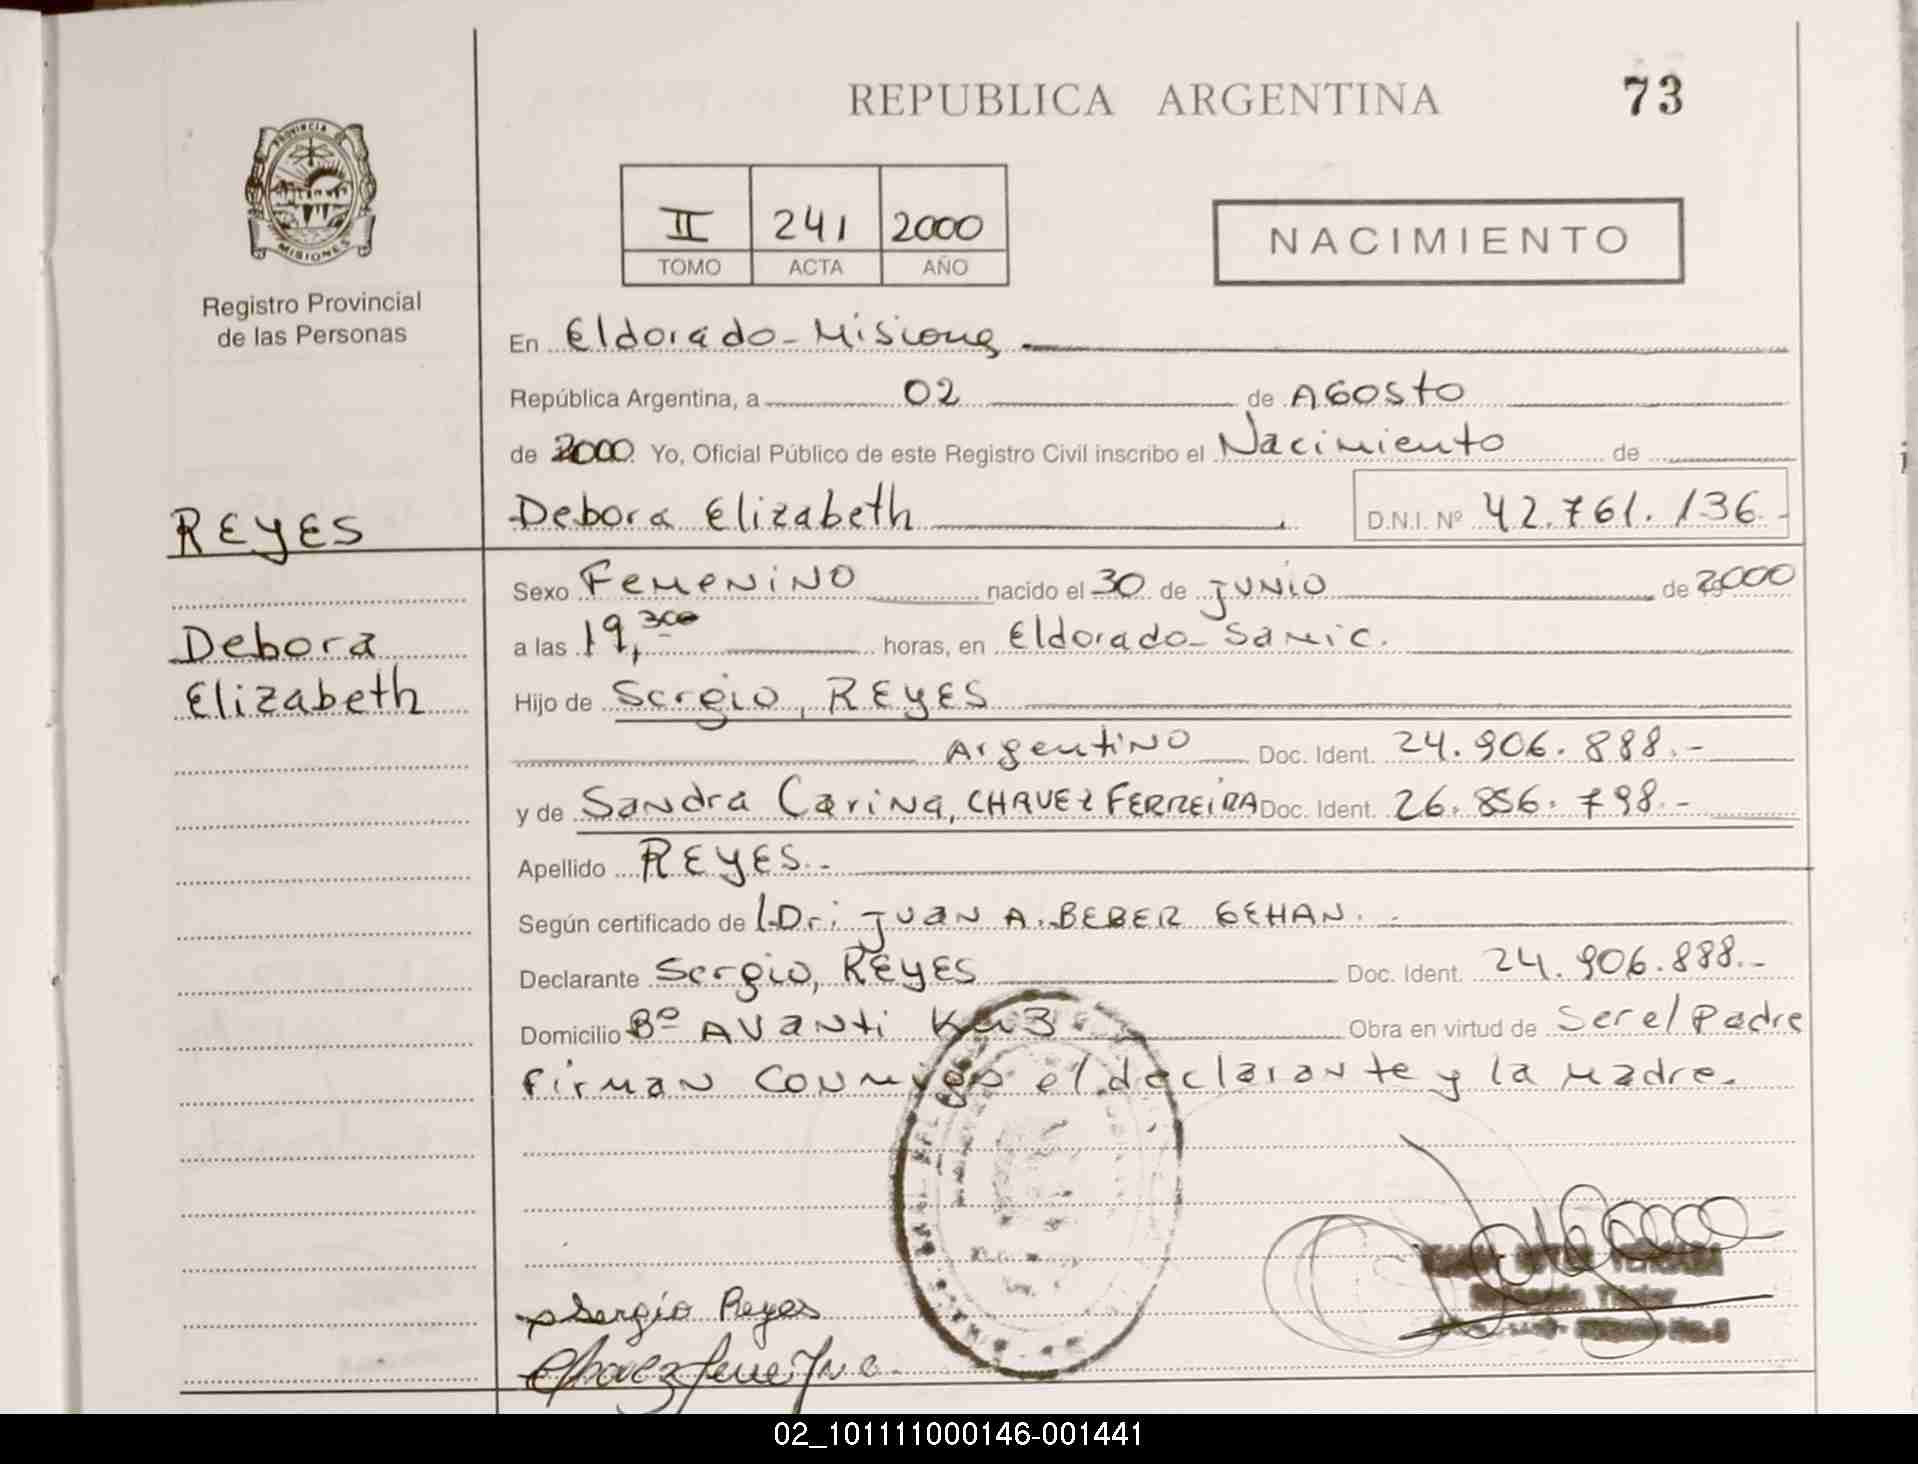 REPUBLICA ARGENTINA
73
PROVINCIA DE
MISIONES
Registro Provincial
de las Personas
II 241 2000
TOMO ACTA AÑO
NACIMIENTO
En Eldorado - Misiones
República Argentina, a 02 de AGOSTO
de 2000 Yo, Oficial Público de este Registro Civil inscribo el Nacimiento de
REYES
Debora Elizabeth D.N.I. Nº 42.761.136.-
Sexo Femenino nacido el 30 de JUNIO de 2000
Debora
Elizabeth
a las 19,30 horas, en Eldorado - Samic.
Hijo de Sergio, REYES
Argentino Doc. Ident. 24.906.888.-
y de Sandra Carina, CHAVEZ FERREIRA Doc. Ident. 26.856.798.-
Apellido REYES.-
Según certificado de l.Dr: Juan A. BEBER GEHAN.
Declarante Sergio, REYES Doc. Ident. 24.906.888.-
Domicilio Bº AVanti Km 3 Obra en virtud de Ser el Padre
Firman conmigo el declarante y la Madre.
Sergio Reyes
02_101111000146-001441